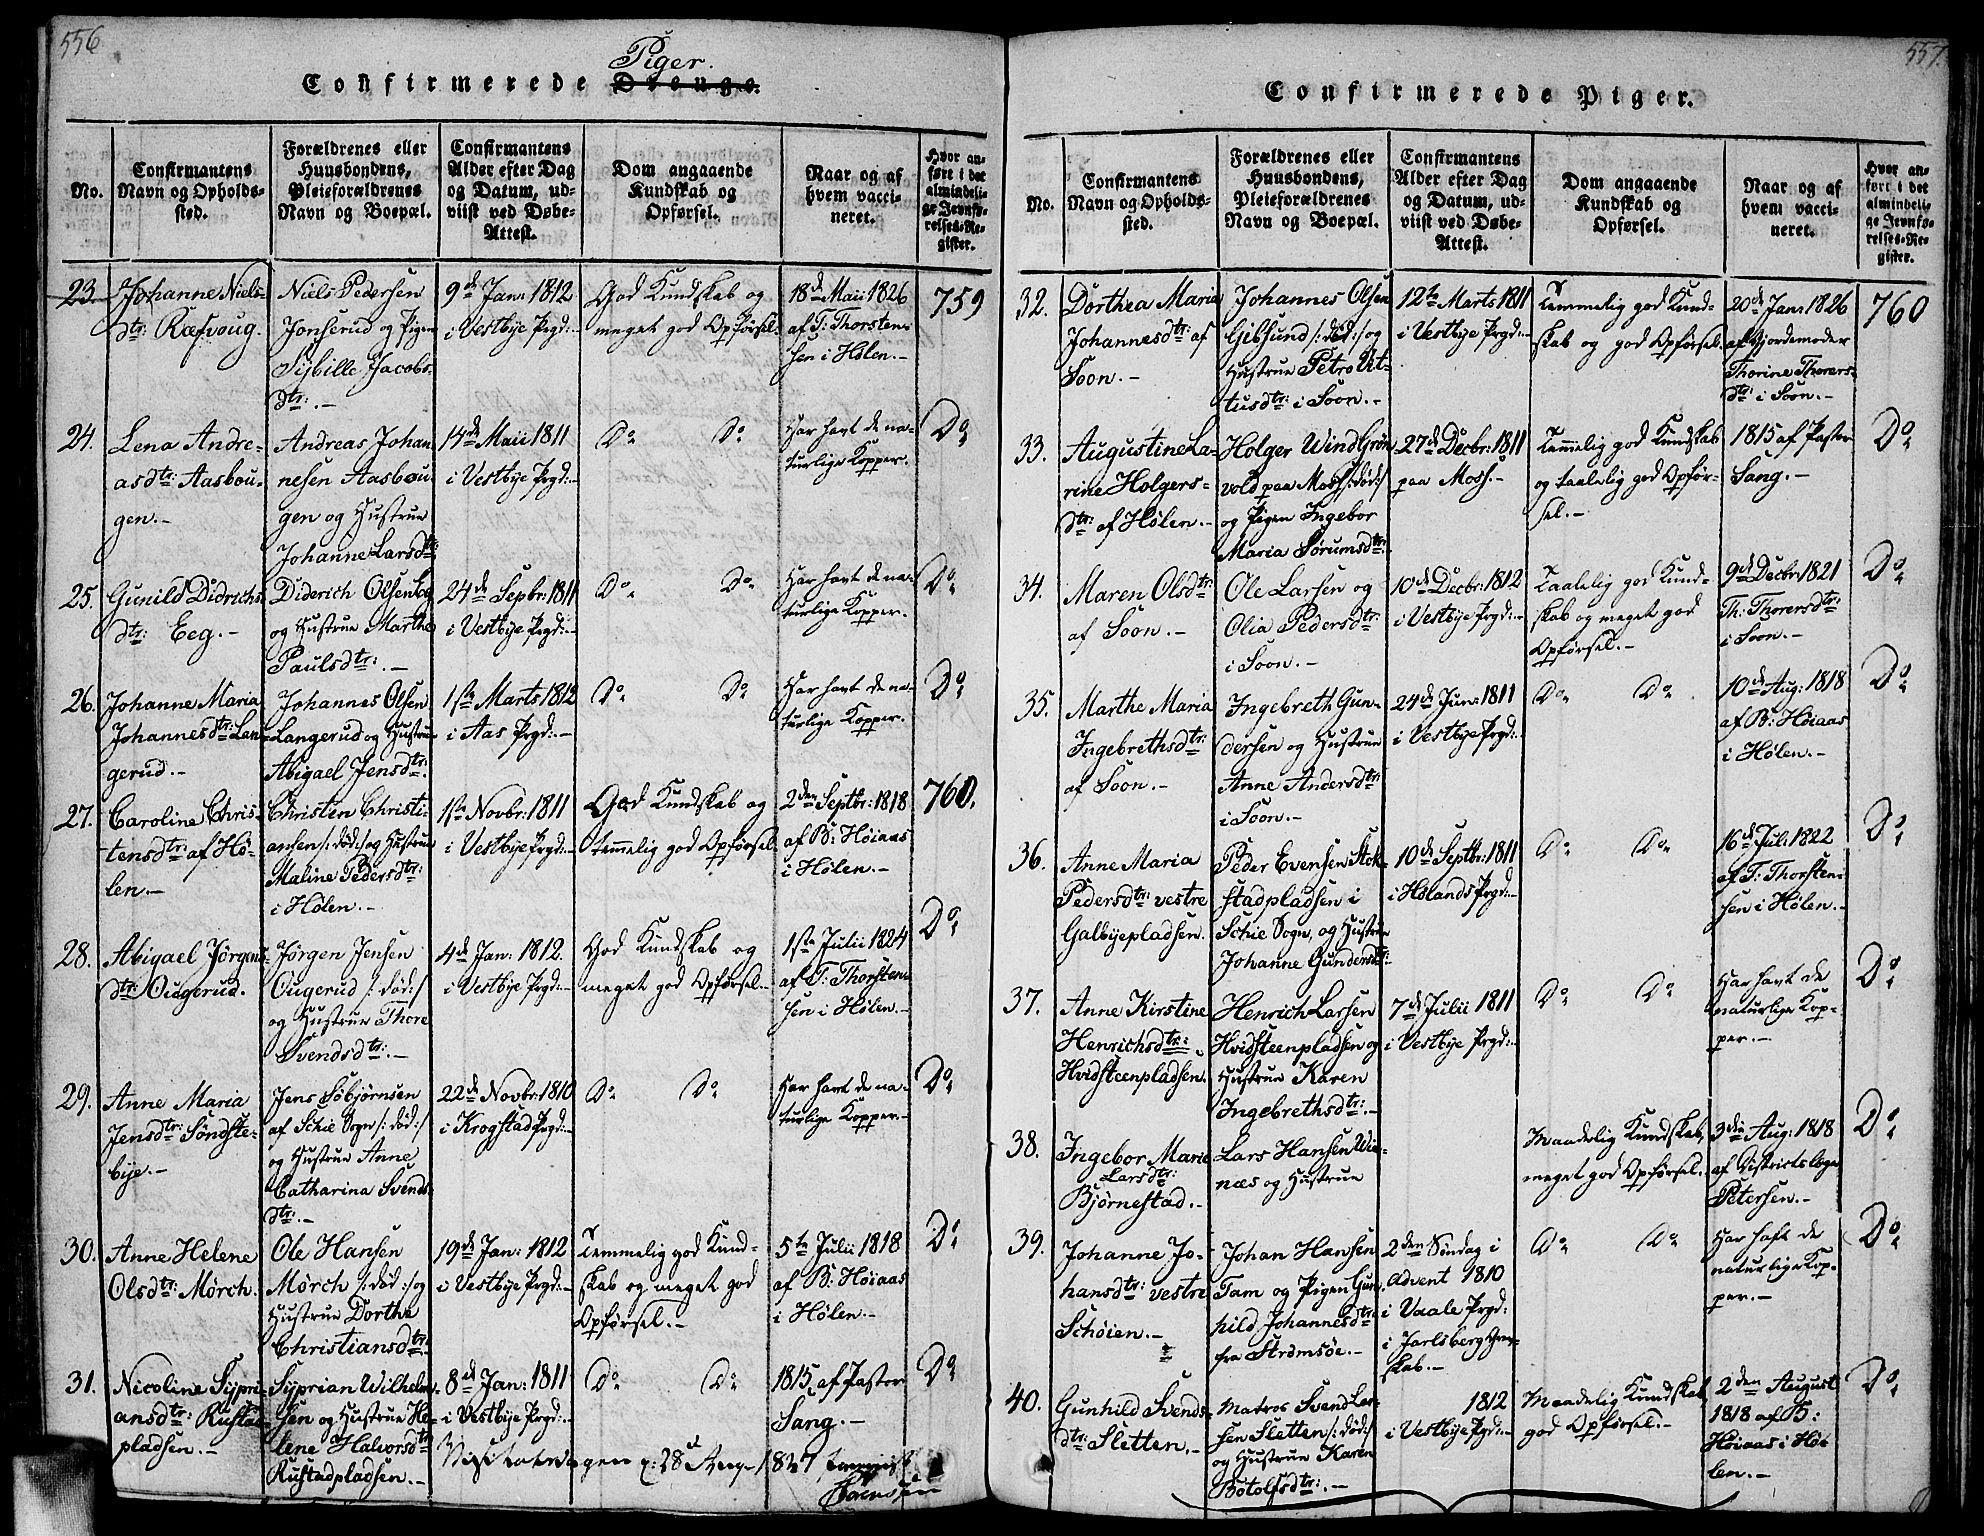 556
Piger.
Confirmerede Drenge.
No.
Confirmantens
Navn og Opholds-
sted.
Forældrenes eller
Huusbondens,
Pleieforældrenes
Navn og Boepæl.
Confirmantens
Alder efter Dag
og Datum, ud-
viist ved Døbe-
Attest.
Dom angaaende
Kundskab og
Opførsel.
Naar og af
hvem vacci-
neret.
Hvor an-
ført i det
almindeli-
ge Jevnfø-
relses-Re-
gister.
23.
Johanne Niels-
dtr: Ræfvoug.
Niels Pedersen
Jonserud og Pigen
Sybille Jacobs-
dtr:.-
9de Jan: 1812
i Vestbye Prgd:-
God Kundskab og
meget god Opførsel.
18de Maii 1826
af T: Thorsten-
sen i Hølen.-
759
24.
Lena Andre-
asdtr: Aasbou-
gen.-
Andreas Johan-
nesen Aasbou-
gen og Hustrue
Johanne Larsdtr:
14de Maii 1811
i Vestbye Prgd:-
Do Do
Har havt de na-
turlige Kopper.
Do
25.
Gunild Didrichs-
dtr: Eeg.-
Diderich Olsen Eeg
og Hustrue Marthe
Paulsdtr:.-
24de Sepbr: 1811
i Vestbye Prgd:-
Do Do
Har havt de na-
turlige Kopper.-
Do
26.
Johanne Maria
Johannesdtr: Lan-
gerud.-
Johannes Olsen
Langerud og Hustrue
Abigael Jensdtr:
1ste Marts 1812
i Aas Prgd:-
Do Do
Har havt de na-
turlige Kopper.-
Do
27.
Caroline Chris-
tensdtr: af Hø-
len.-
Christen Christi-
ansen /: død :/ og Hustrue
Maline Pedersdtr:
i Hølen.-
1ste Novbr: 1811
i Vestbye Prgd:-
God Kundskab og
temmelig god Opførsel.
2den Septbr: 1818
af B: Höiaas
i Hølen.-
760.
28.
Abigael Jørgens-
dtr: Ougerud.
Jørgen Jensen
Ougerud /: død :/
og Hustrue Thore
Svendsdtr:.-
4de Jan: 1812.
i Vestbye Prgd:-
God Kundskab og
meget god Opførsel.-
1ste Julii 1824
af T: Thorsten-
sen i Hølen.-
Do
29.
Anne Maria
Jensdtr: Söndste-
bye.-
Jens Söbjörnsen
af Schie Sogn /: død :/
og Hustrue Anne
Catharina Svends-
dtr:.-
22de Novbr: 1810
i Krogstad Prgd:-
Do Do
Har havt de na-
turlige Kopper.-
Do
30.
Anne Helene
Olsdtr: Mørch.
Ole Hansen
Mørch /: død :/ og
Hustrue Dorthe
Christiansdtr:
19de Jan: 1812
i Vestbye Prgd:-
Temmelig god Kund-
skab og meget god
Opførsel.-
5te Julii 1818
af B: Höiaas
i Hølen.-
Do
31.
Nicoline Sypri-
ansdtr: Rustad-
pladsen.-
Syprian Wilhelm-
sen og Hustrue He-
lene Halvorsdtr:
Rustadpladsen.-
8de Jan: 1811
i Vestbye Prgd:-
Do Do
1815 af Pastor
Sang.-
Do
28de Aug. 1827
557.
Confirmerede Piger.
No.
Confirmantens
Navn og Opholds-
sted.
Forældrenes eller
Huusbondens,
Pleieforældrenes
Navn og Boepæl.
Confirmantens
Alder efter Dag
og Datum, ud-
viist ved Døbe-
Attest.
Dom angaaende
Kundskab og
Opførsel.
Naar og af
hvem vacci-
neret.
Hvor an-
ført i det
almindeli-
ge Jevnfø-
relses-Re-
gister.
32.
Dorthea Maria
Johannesdtr: af
Soon.-
Johannes Olsen
Gibsund /: død :/ og
Hustrue Petro At-
tusdtr: i Soon.-
12te Marts 1811
i Vestbye Prgd:-
Temmelig god Kund-
skab og god Opførsel.
20de Jan: 1826
af Gjordemoder
Thorine Thorers-
dtr: i Soon.-
760
33.
Augustine La-
rine Holgers-
dtr: af Hølen.-
Holger Wind Grön-
vold paa Moss /: død :/
og Pigen Ingebor
Maria Sørumsdtr:
27de Decbr: 1811
paa Moss.-
Temmelig god Kundskab
og taalelig god Opfør-
sel.-
1815 af Pastor
Sang.-
Do
34.
Maren Olsdtr:
af Soon.-
Ole Larsen og
Olia Pedersdtr:
i Soon.-
10de Decbr: 1812
i Vestbye Prgd:-
Taalelig god Kund-
skab og meget god
Opførsel.-
9de Decbr 1821
Th: Thorersdtr:
i Soon.-
Do
35.
Marthe Maria
Ingebrethsdtr:
af Soon.-
Ingebreth Gun-
dersen og Hustrue
Anne Andersdtr:
i Soon.-
24de Jun: 1811
i Vestbye Prgd:-
Do Do
10de Aug: 1818
af B: Höiaas
i Hølen.-
Do
36.
Anne Maria
Pedersdtr: vestre
Galbyepladsen.
Peder Evensen Stok-
stadpladsen i
Schie Sogn, og Hustrue
Johanne Gundersdtr:
10de Septbr: 1811
i Hølands Prgd:-
Do Do
16de Jul: 1822
af T: Thorsten-
sen i Hølen.-
Do
37.
Anne Kirstine
Henrichsdtr:
Hvidsteenpladsen.
Henrich Larsen
Hvidsteenpladsen og
Hustrue Karen
Ingebrethsdtr:.-
7de Julii 1811
i Vestbye Prgd:-
Do Do
Har havt de
naturlige Kop-
per.-
Do
38.
Ingebor Marie
Larsdtr:
Bjørnestad.-
Lars Hansen Wie-
næs og Hustrue
Maadelig Kundskab,
meget god Opførsel.-
3die Aug: 1818
af Districtslæge
Petersen.-
Do
39.
Johanne Jo-
hansdtr: vestre
Schöien.-
Johan Hansen
Tam og Pigen Gun-
hild Johannesdtr:
fra Strömsöe.-
2den Søndag i
Advent 1810
i Vaale Prgd:
i Jarlsberg Grev-
skab.-
Do Do
Har haft de
naturlige Kop-
per.-
Do
40.
Gunhild Svends-
dtr: Sletten.-
Matros Svend Lar-
sen Sletten /: død :/
og Hustrue Karen
Botolfsdtr:.-
1812
i Vestbye Prgd:-
Maadelig Kundskab
god Opførsel.-
2den August
1818 af B:
Höiaas i Hø-
len.-
Do